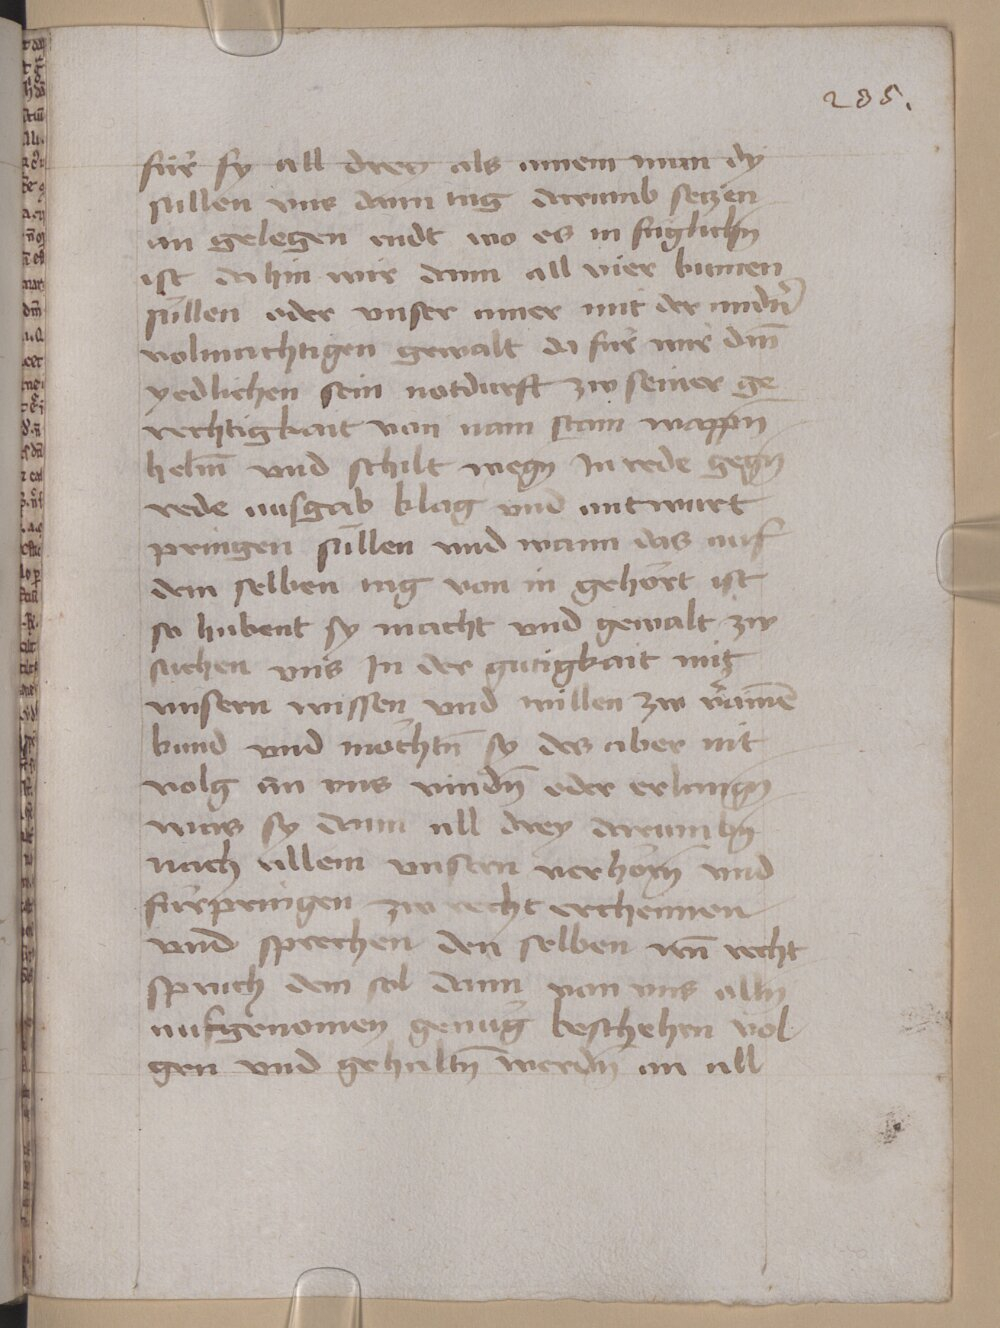 235.
für sy all drey als ainem man dy
süllen uns dann tag darumb setzen
an gelegen endt wo es in füglichn
ist dahin wir dann all vier kumen
süllen oder unser ainer mit der andern
volmachtigen gewalt da für wir dan̄
yedlichen sein notdurft zw seiner ge
rechtigkait von nam stam wappn̄
helm̄ vnd schilt wegn In rede gegn
rede ausgab klag vnd antwurt
pringen süllen vnd wann das auf
dem selben tag von in gehört ist
so habent sy macht vnd gewalt zw
suchen vns In der gütigkait mit
unsern wissen vnd willen zw
vnd möchtn̄ sy des aber nit
volg an vns vindn̄ oder erlangn
was sy dann all drey darumbn
nach allem vnsern verhörn vnd
fürpringen zw recht erchennen
vnd sprechen den selben recht
spruch dem sol dann von vns alln
aufgenomen genüg beschehen vol
gen vnd gehaltn̄ werdn̄ an all